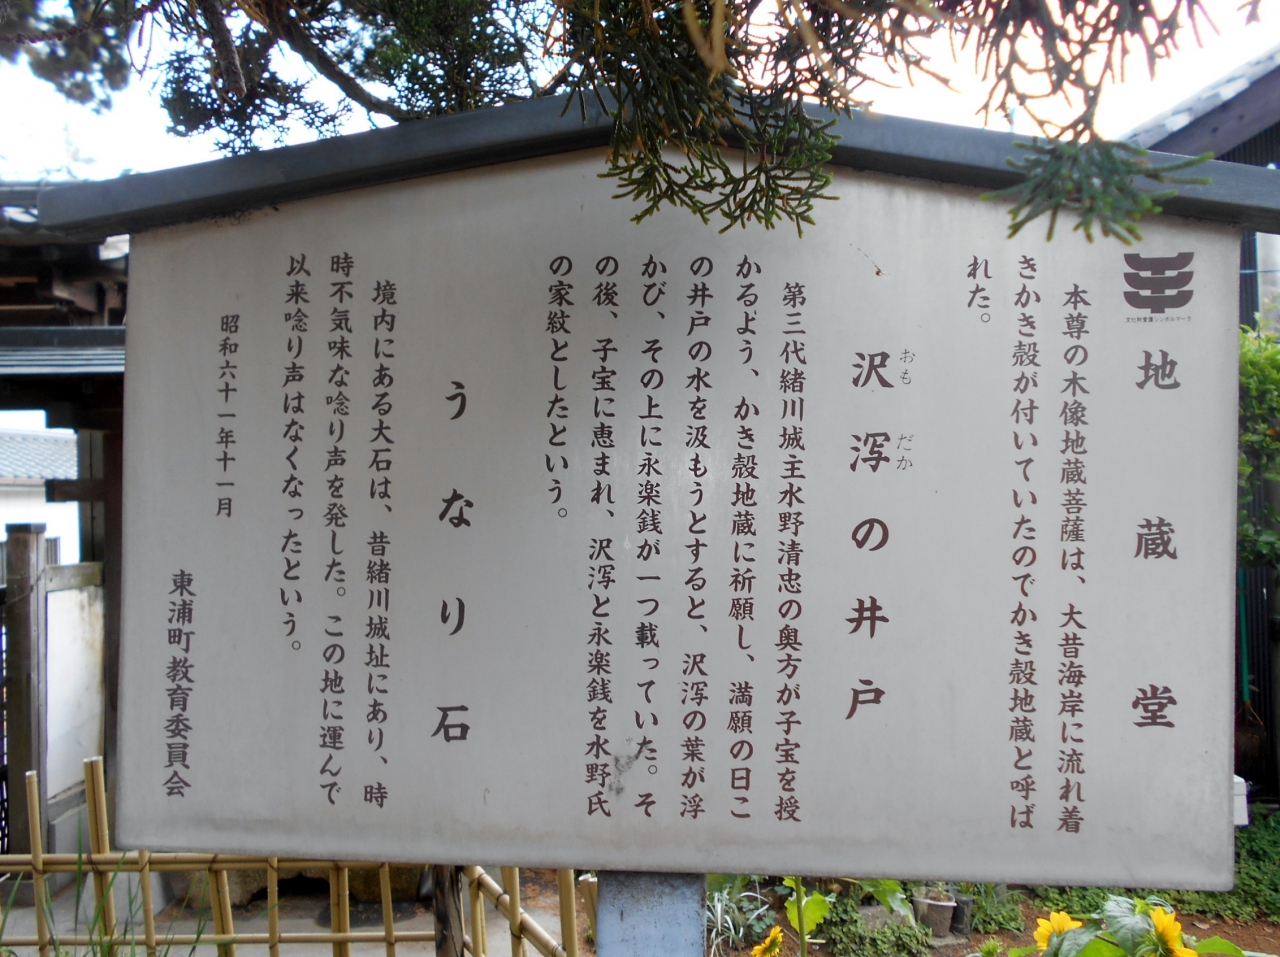 文化財愛護シンボルマーク
地蔵堂
本尊の木像地蔵菩薩は、大昔海岸に流れ着
きかき殻が付いていたのでかき殻地蔵と呼ば
れた。
沢瀉の井戸
おもだか
第三代緒川城主水野清忠の奥方が子宝を授
かるよう、かき殻地蔵に祈願し、満願の日こ
の井戸の水を汲もうとすると、沢瀉の葉が浮
かび、その上に永楽銭が一つ載っていた。そ
の後、子宝に恵まれ、沢瀉と永楽銭を水野氏
の家紋としたという。
うなり石
境内にある大石は、昔緒川城址にあり、時
時不気味な唸り声を発した。この地に運んで
以来唸り声はなくなったという。
昭和六十一年十一月
東浦町教育委員会